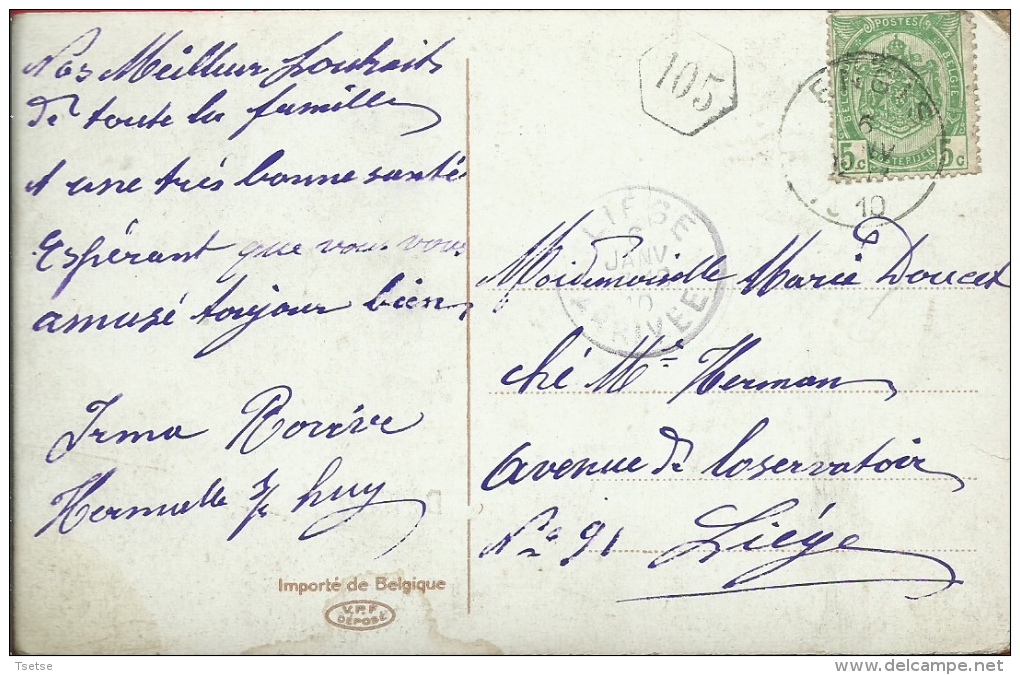 Nos Meilleur Souhaits
de toute la famille
et une très bonne santé
Espérant que vous vous
amusé toujour bien,
Irma
Hermalle s/ huy
Importé de Belgique
V.P.F
DÉPOSÉ
105
POSTES
BELGIE
5c 5c
ENGIS
6
10
LIEGE
6
JANV
10
ARRIVEE
Moidemoiselle Marie Doucet
ché Mr Herman
avenue de loservatoir
No 91 Liége
Tsetse
www.delcampe.net